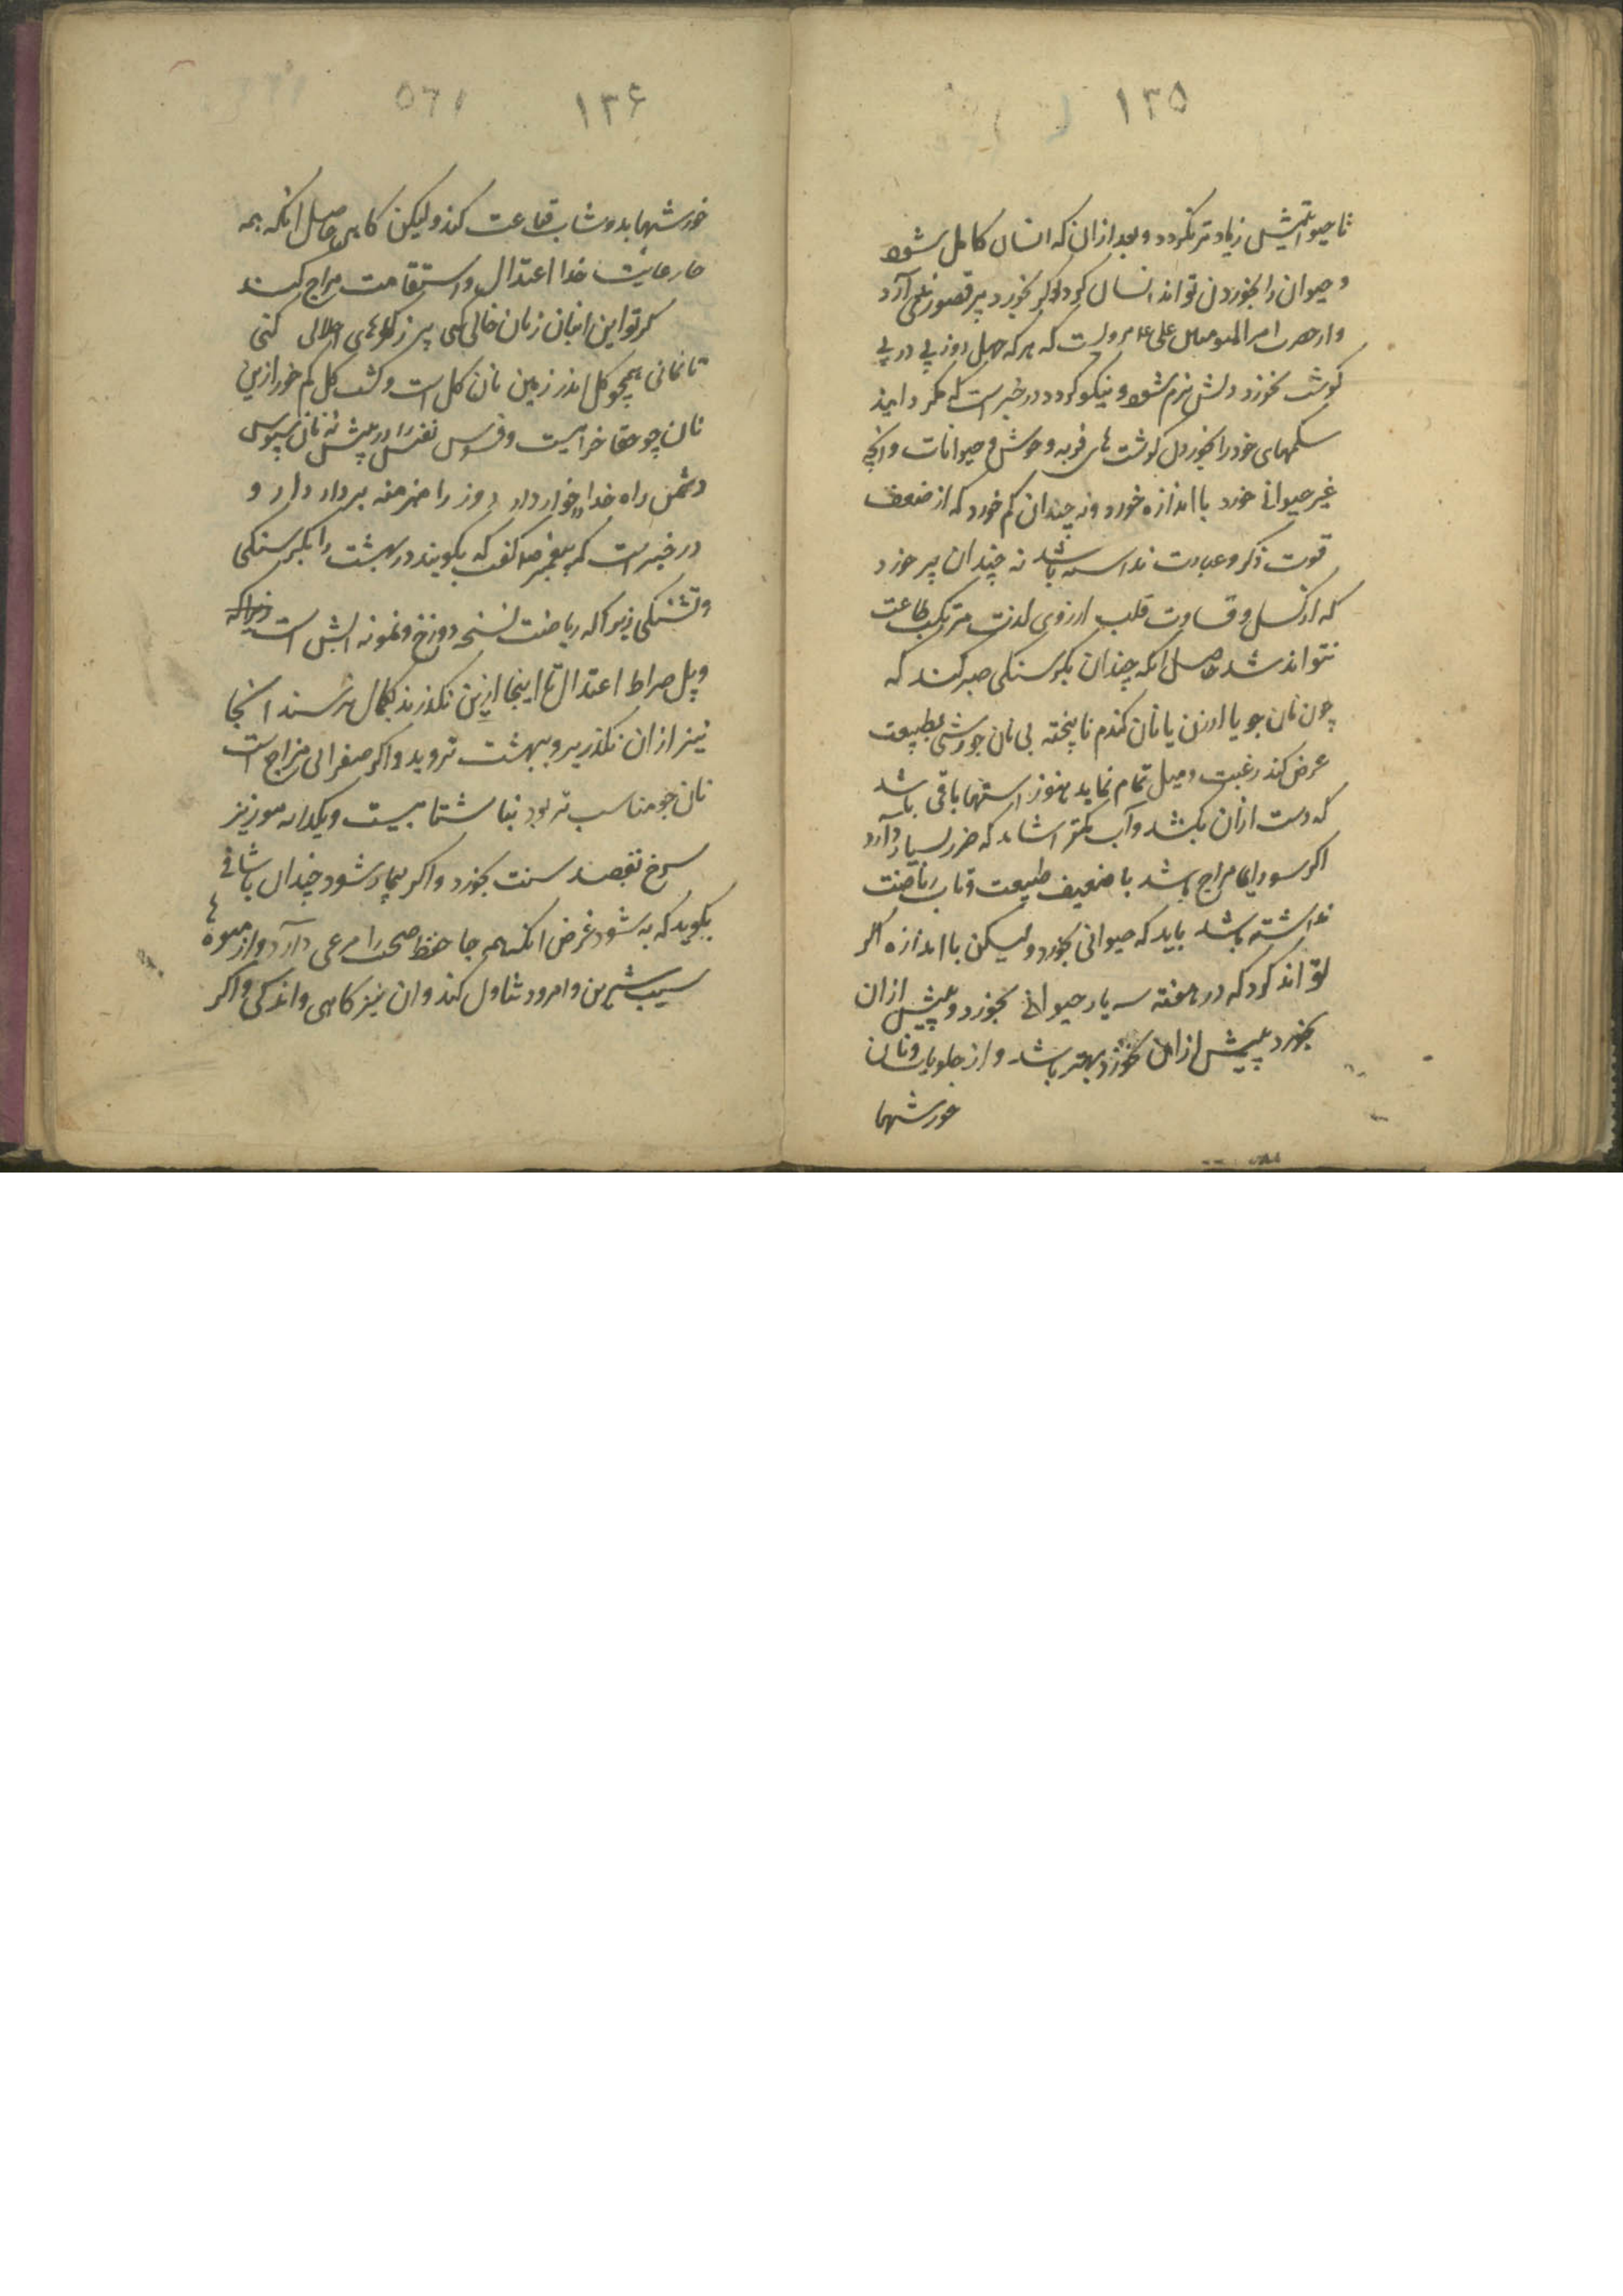 ۱۳۵
تا حیوانیتش زیادتر نکردد و بعد از ان که انسان کامل شود
و حیوان را بخوردن تواند انسان کرد اگر بخورد پر قصور نمی آرد
و از حضرت امیر المومنین علی ع مرویست که هر که چهل روز پی در پی
کوشت نخورد دلش نرم شود و نیکو کردد و در خبر است که مکردانید
شکمهای خود را بخوردن کوشت های فربه وحوش و حیوانات و انچه
غیر حیوانی خورد با اندازه خورد و نه چندان کم خورد که از ضعف
قوت ذکر و عبادت نداشته باشد نه چندان پر خورد
که از کسل و قساوت قلب ارزوی لذت مرتکب طاعت
نتواند شد حاصل انکه چندان بکرسنکی صبر کند که
چون نان جو یا ارزن یا نان کندم ناپخته بی نان خورشی بطبیعت
عرض کند رغبت و میل تمام نماید هنوز اشتها باقی باشد
که دست از ان بکشد و آب کمتر اشامد که ضرر بسیار دارد
اکر سودایی مزاج باشد یا ضعیف طبیعت و تاب ریاضت
نداشته باشد باید که حیوانی بخورد و لیکن با اندازه اکر
تواند کرد که در هفته سه بار حیوانی بخورد و بیش از ان
نخورد بیش از ان نخورد بهتر باشد و از حلویات و نان
خورشها
۱۳۶
۵۶۱
خورشها بدوشاب قناعت کند و لیکن کاهی حاصل انکه همه
جا رعایت خدا اعتدال و استقامت مزاج کند
کر تو این انبان ز نان خالی کنی پر ز کوهرهای اجلالی کنی
تا نمانی همچو کل اندر زمین نان کل است و کشت کل کم خور ازین
نان جو حقا حرامست و فسوس نفس را در پیش نه نان سبوس
دشمن راه خدا را خوار دار دزد را منبر منه بر دار دار و
در خبر است که پیغمبر ص کفت که بکوبید در بهشت را بکرسنکی
و تشنکی زیرا که ریاضت نسخه دوزخ و نمونه اتش است زیرا که
و پل صراط اعتدال تا اینجا ازین نکذرند بکمال نرسند انجا
نیز از ان نکذرید و ببهشت نروید و اکر صفرایی مزاج است
نان جو مناسب تر بود بناشتا بیست و یکدانه مویز
سرخ بقصد سنت بخورد و اکر بیمار شود چندان یا شافی
بکوید که به شود غرض انکه همه جا حفظ صحت را مرعی دارد و از میوه ها
سیب شیرین و امرود تناول کند و ان نیز کاهی و اندکی و اکر